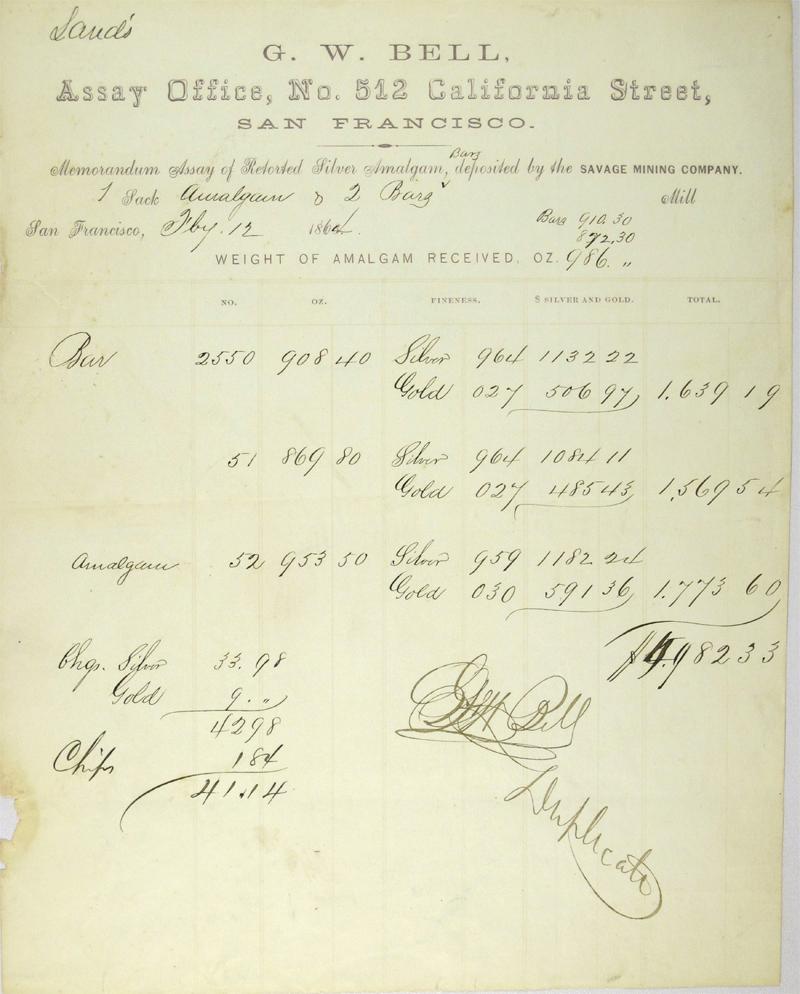 Sand's
G. W. BELL,
Assay Office, No. 512 California Street,
SAN FRANCISCO.
Bars
Memorandum Assay of Retorted Silver Amalgam, deposited by the SAVAGE MINING COMPANY.
1 Sack Amalgam & 2 Bars Mill
San Francisco, Fby. 12 1864. Bars 910.30
872.30
WEIGHT OF AMALGAM RECEIVED, OZ. 986. „
NO. OZ. FINENESS. $ SILVER AND GOLD. TOTAL.
Bar 2550 908 40 Silver 964 1132 22
Gold 027 506 97 1.639 19
51 869 80 Silver 964 1084 11
Gold 027 485 43 1.569 54
Amalgam 52 953 50 Silver 959 1182 24
Gold 030 591 36 1.773 60
$4.982 33
Chgs. Silver 33.98
Gold 9. „
4298
Chips 184
41.14
G W Bell
Duplicate